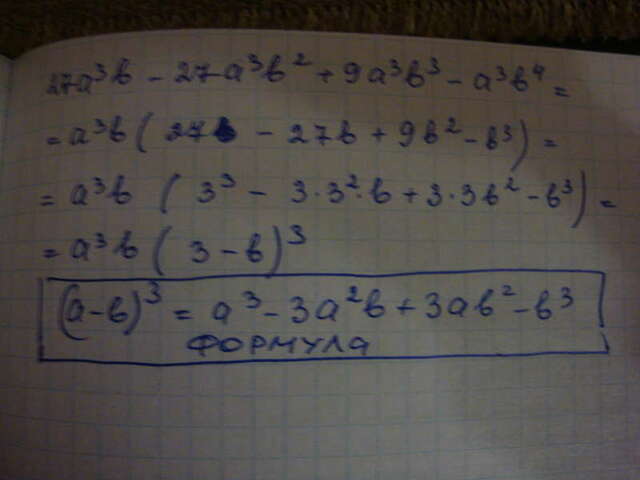 27a³b - 27a³b² + 9a³b³ - a³b⁴ =
= a³b ( 27 - 27b + 9b² - b³ ) =
= a³b ( 3³ - 3·3²·b + 3·3b² - b³ ) =
= a³b ( 3 - b )³
(a - b)³ = a³ - 3a²b + 3ab² - b³
ФОРМУЛА